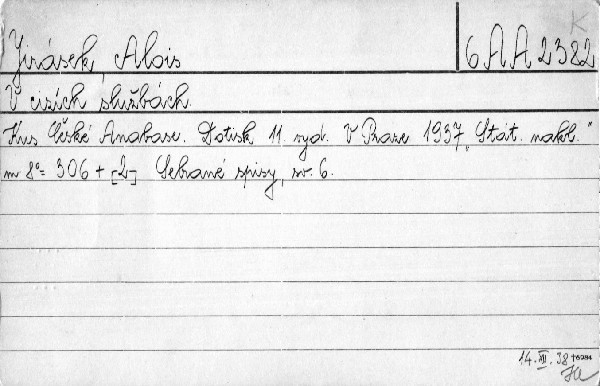 K
Jirásek, Alois 6 AA 2382
V cizích službách.
Kus České Anabase. Dotisk 11. vyd. V Praze 1937, "Stát. nakl."
m 8° = 306 + [2] Sebrané spisy, sv. 6.
14. XII. 38